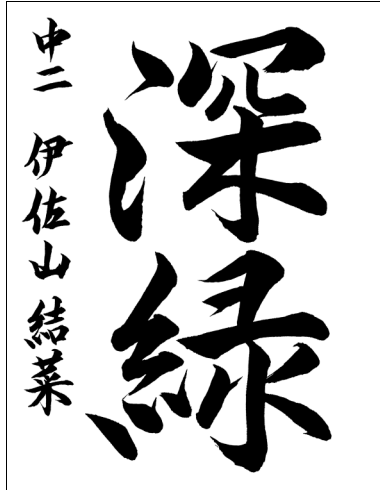 深緑
中二 伊佐山結菜